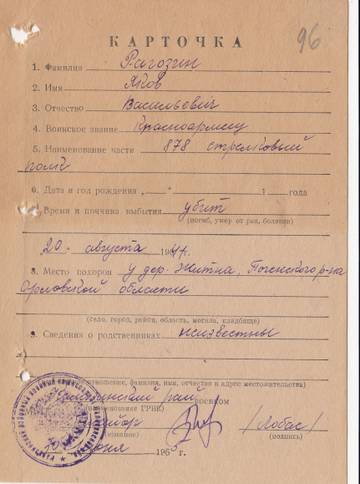 96
КАРТОЧКА
1. Фамилия Рагозин
2. Имя Яков
3. Отчество Васильевич
4. Воинское звание Красноармеец
5. Наименование части 878 стрелковый
полк
6. Дата и год рождения „ “ 1 года
Время и причина выбытия убит
(погиб, умер от ран, болезни)
20 августа 194
8. Место похорон у дер. Житня, Почепского р-на
Орловской области
(село, город, район, область, могила, кладбище)
9. Сведения о родственниках неизвестны
отношение, фамилия, имя, отчество и адрес местожительства)
район
военком
(наименование ГРВК)
майор /Лобас/
(звание) (подпись)
196